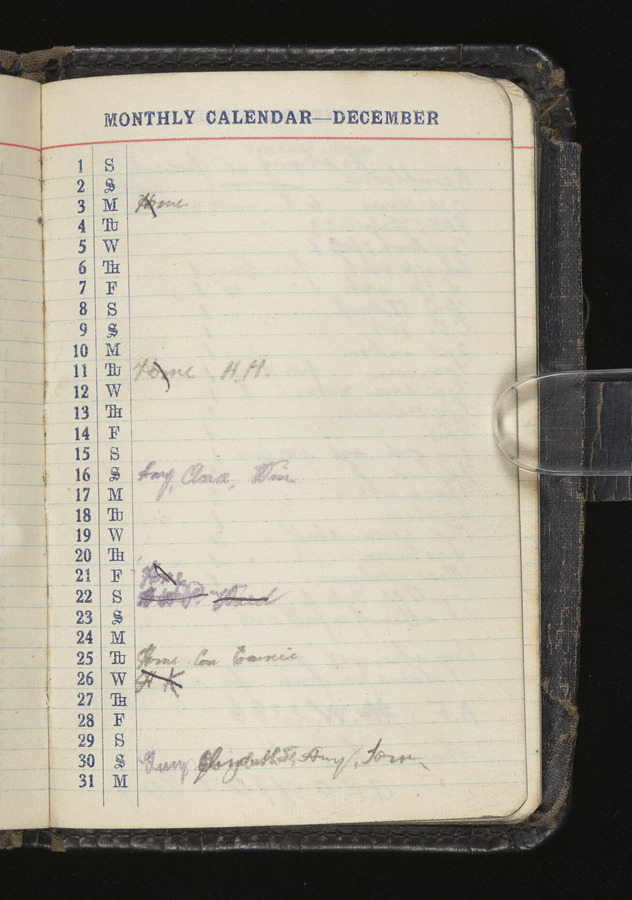 MONTHLY CALENDAR—DECEMBER
1 S
2 S
3 M Home
4 TU
5 W
6 TH
7 F
8 S
9 S
10 M
11 TU Home H.H.
12 W
13 TH
14 F
15 S
16 S Amy, Clara,
17 M
18 TU
19 W
20 TH
21 F
22 S
23 S
24 M
25 TU Home
26 W
27 TH
28 F
29 S
30 S Elizabeth Amy,
31 M